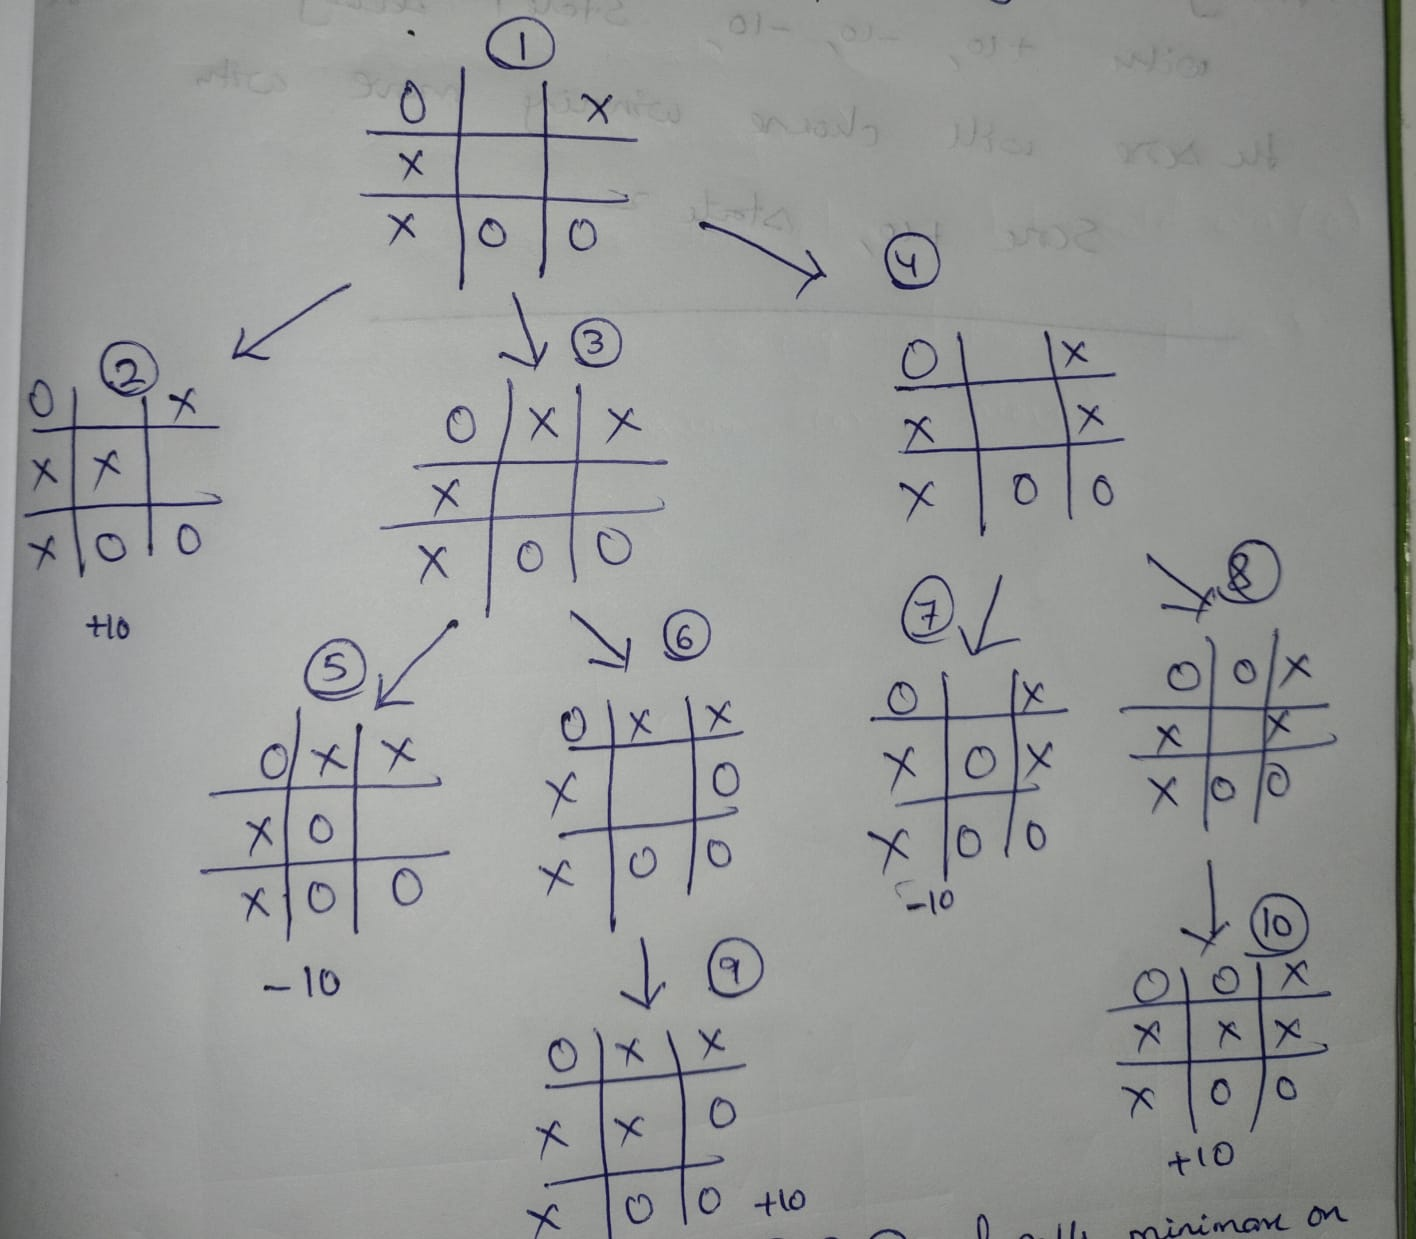 1
O X
X
X O O
4
2
O X
X X
X O O
+10
3
O X X
X
X O O
O X
X X
X O O
5
O X X
X O
X O O
-10
6
O X X
X O
X O O
7
O X
X O X
X O O
-10
8
O O X
X X
X O O
9
O X X
X X O
X O O +10
10
O O X
X X X
X O O
+10
minimax on